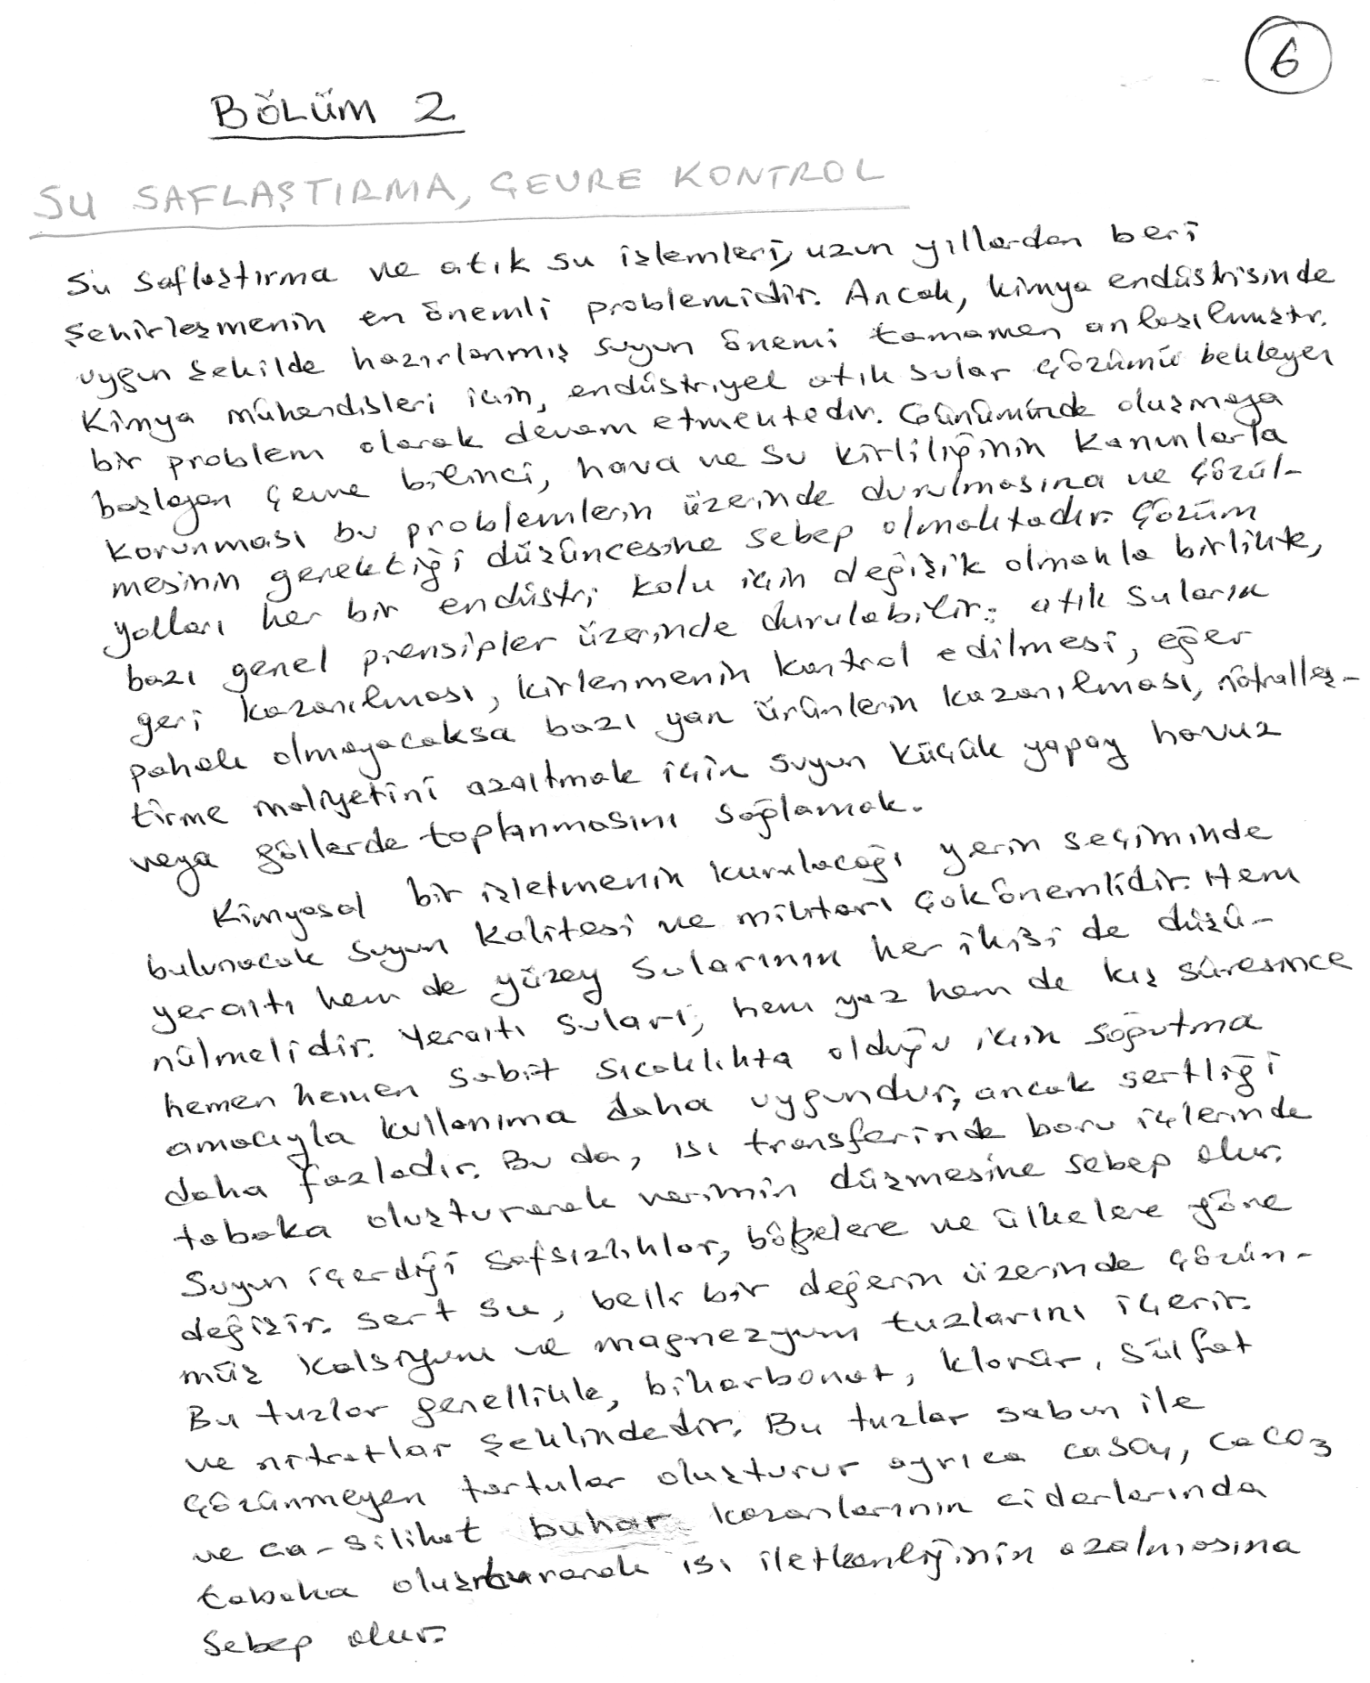 6
BÖLÜM 2
SU SAFLAŞTIRMA, ÇEVRE KONTROL
Su saflaştırma ve atık su işlemleri, uzun yıllardan beri
şehirleşmenin en önemli problemidir. Ancak, kimya endüstrisinde
uygun şekilde hazırlanmış suyun önemi tamamen anlaşılmıştır.
Kimya mühendisleri için, endüstriyel atık sular çözümü bekleyen
bir problem olarak devam etmektedir. Günümüzde oluşmaya
başlayan çevre bilinci, hava ve su kirliliğinin kanunlarla
korunması bu problemlerin üzerinde durulmasına ve çözül-
mesinin gerektiği düşüncesine sebep olmaktadır. Çözüm
yolları her bir endüstri kolu için değişik olmakla birlikte,
bazı genel prensipler üzerinde durulabilir: atık suların
geri kazanılması, kirlenmenin kontrol edilmesi, eğer
pahalı olmayacaksa bazı yan ürünlerin kazanılması, nötralleş-
tirme maliyetini azaltmak için suyun küçük yapay havuz
veya göllerde toplanmasını sağlamak.
Kimyasal bir işletmenin kurulacağı yerin seçiminde
bulunacak suyun kalitesi ve miktarı çok önemlidir. Hem
yeraltı hem de yüzey sularının her ikisi de düşü-
nülmelidir. Yeraltı suları, hem yaz hem de kış süresince
hemen hemen sabit sıcaklıkta olduğu için soğutma
amacıyla kullanıma daha uygundur, ancak sertliği
daha fazladır. Bu da, ısı transferinde boru içlerinde
tabaka oluşturarak verimin düşmesine sebep olur.
Suyun içerdiği safsızlıklar, bölgelere ve ülkelere göre
değişir. Sert su, belli bir değerin üzerinde çözün-
müş kalsiyum ve magnezyum tuzlarını içerir.
Bu tuzlar genellikle, bikarbonat, klorür, sülfat
ve nitratlar şeklindedir. Bu tuzlar sabun ile
çözünmeyen tortular oluşturur ayrıca CaSO4, CaCO3
ve Ca-silikat buhar kazanlarının cidarlarında
tabaka oluşturarak ısı iletkenliğinin azalmasına
sebep olur.